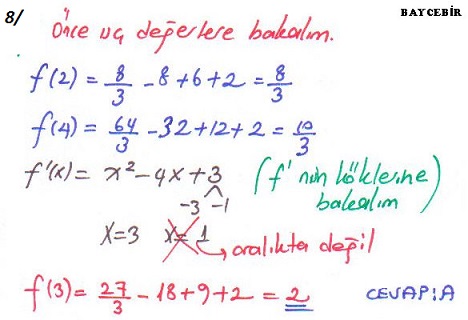 8/ BAYCEBİR
Önce uç değerlere bakalım.
f(2) = 8/3 - 8 + 6 + 2 = 8/3
f(4) = 64/3 - 32 + 12 + 2 = 10/3
f'(x) = x² - 4x + 3 (f' nün köklerine bakalım)
-3 -1
x = 3 x = 1 → aralıkta değil
f(3) = 27/3 - 18 + 9 + 2 = 2 CEVAP: A